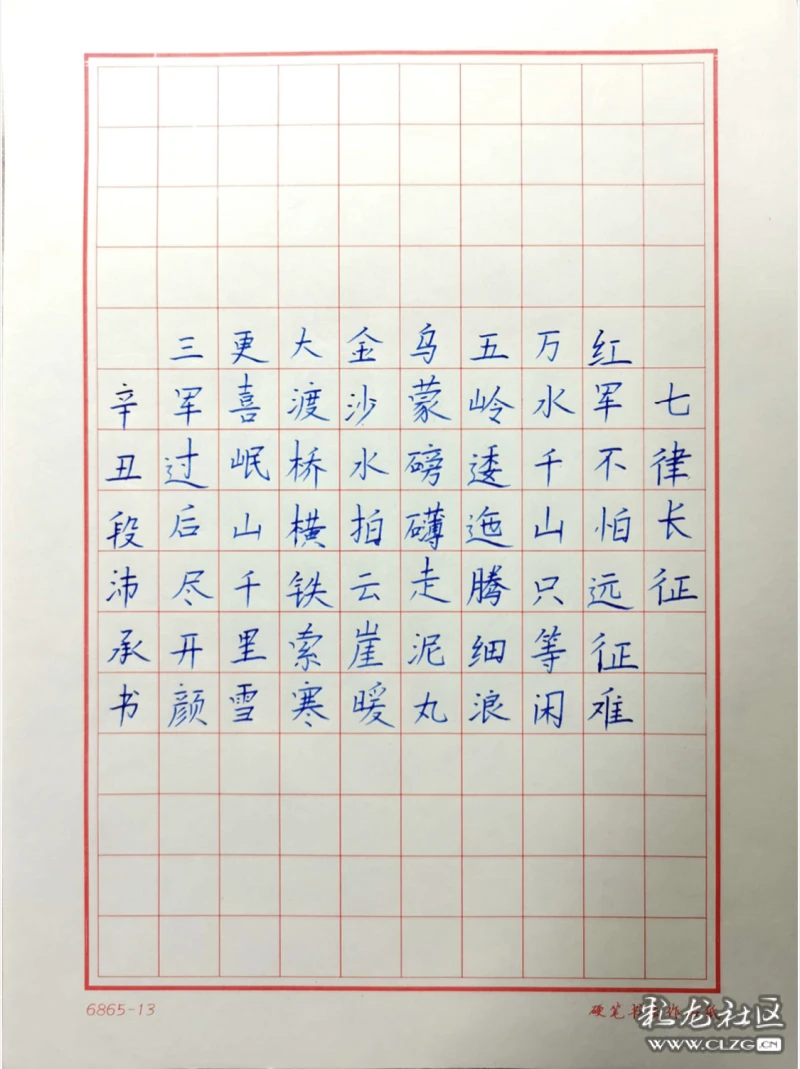 七律长征
红军不怕远征难
万水千山只等闲
五岭逶迤腾细浪
乌蒙磅礴走泥丸
金沙水拍云崖暖
大渡桥横铁索寒
更喜岷山千里雪
三军过后尽开颜
辛丑段沛承书
6865-13
硬笔书
彩龙社区
WWW.CLZG.CN